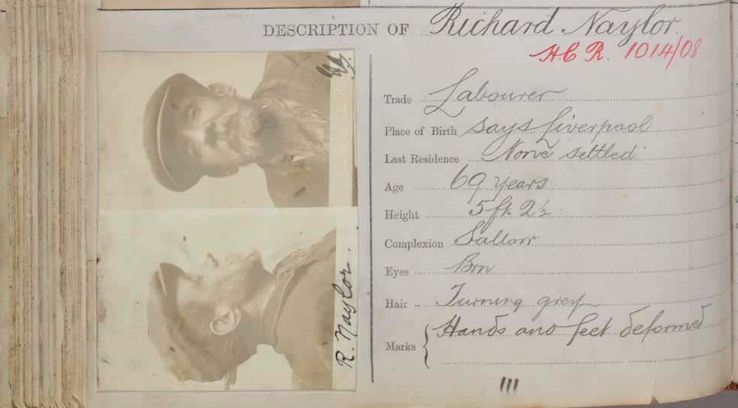 DESCRIPTION OF Richard Naylor.
H C R. 1014/08
Trade Labourer
Place of Birth says Liverpool
Last Residence None settled
Age 69 years
Height 5 ft. 2½
Complexion Sallow
Eyes Brn
Hair Turning grey
Marks Hands and feet deformed
R. Naylor.